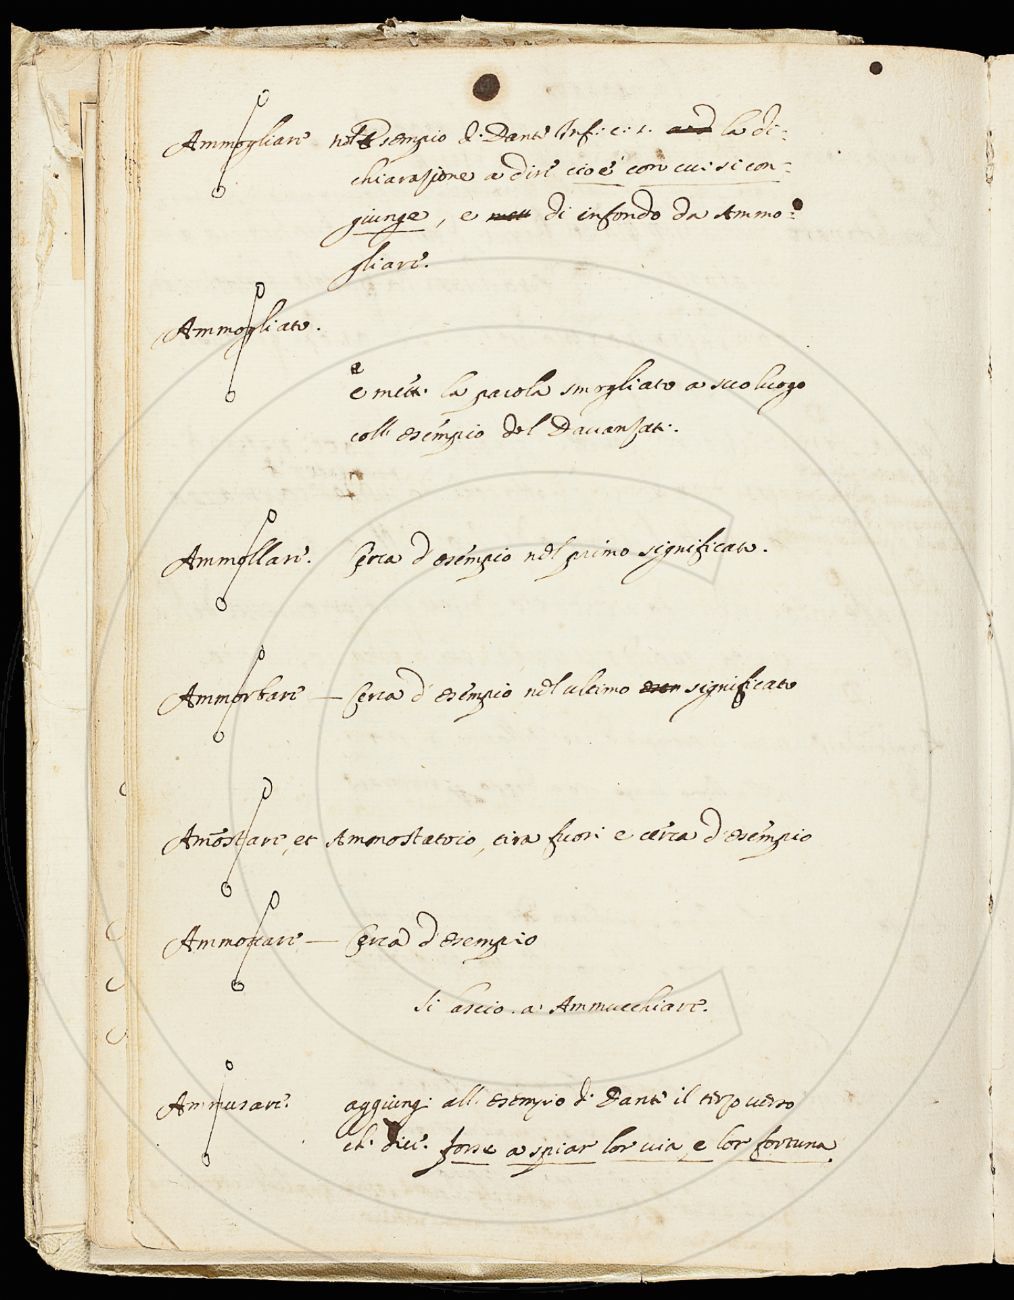 Ammogliare nell'esempio di Dante Inf: c: 1. la di-
chiarazione a dire cioè con cui si con-
giunge, e di in fondo da Ammo-
gliare.
Ammogliato.
e mett: la parola smogliato a suo luogo
coll' esempio del Davanzati.
Ammollare. Cerca d'esempio nel primo significato.
Ammorbare — Cerca d'esempio nel ultimo significato
Amostare, et Ammostatoio, tira fuori e cerca d'esempio
Ammottare — Cerca d'esempio
Si lascio a Ammucchiare.
Ammusare. aggiungi all' esempio di Dante il terzo verso
che dice. forse a spiar lor via, e lor fortuna.